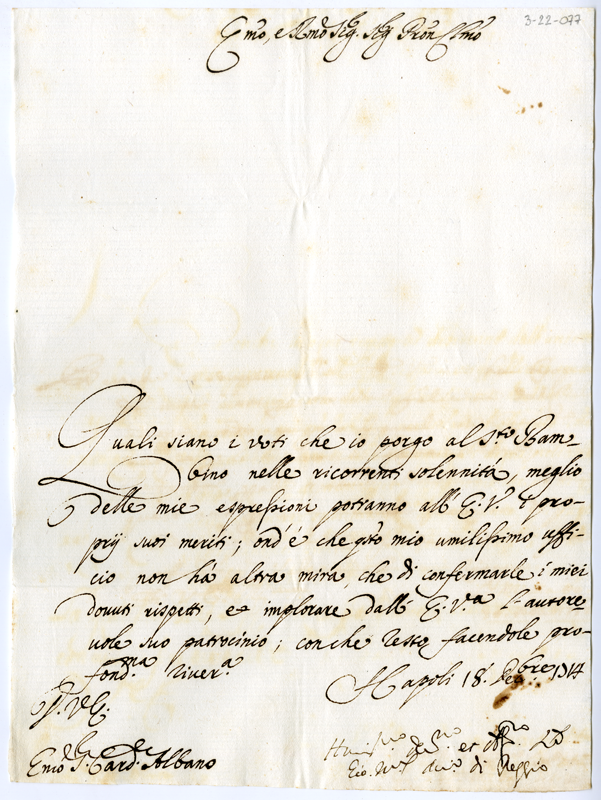 3-22-077
Emo, e Rmo Sig. Sig Pron Ossmo
Quali siano i voti che io porgo al Sto Bam=
bino nelle ricorrenti solennità, meglio
delle mie espressioni potranno all' E.V. i pro=
prij suoi meriti; ond' è che qsto mio umilissimo uffi=
cio non hà altra mira, che di confermarle i miei
dovuti rispetti, et implorare dall' E.V.a l'autore
vole suo patrocinio; con che resto facendole pro=
fond.ma river.a
Napoli 18 Xbre 1714
D. V. E.
Emo S. Card. Albano
et
di Reggio